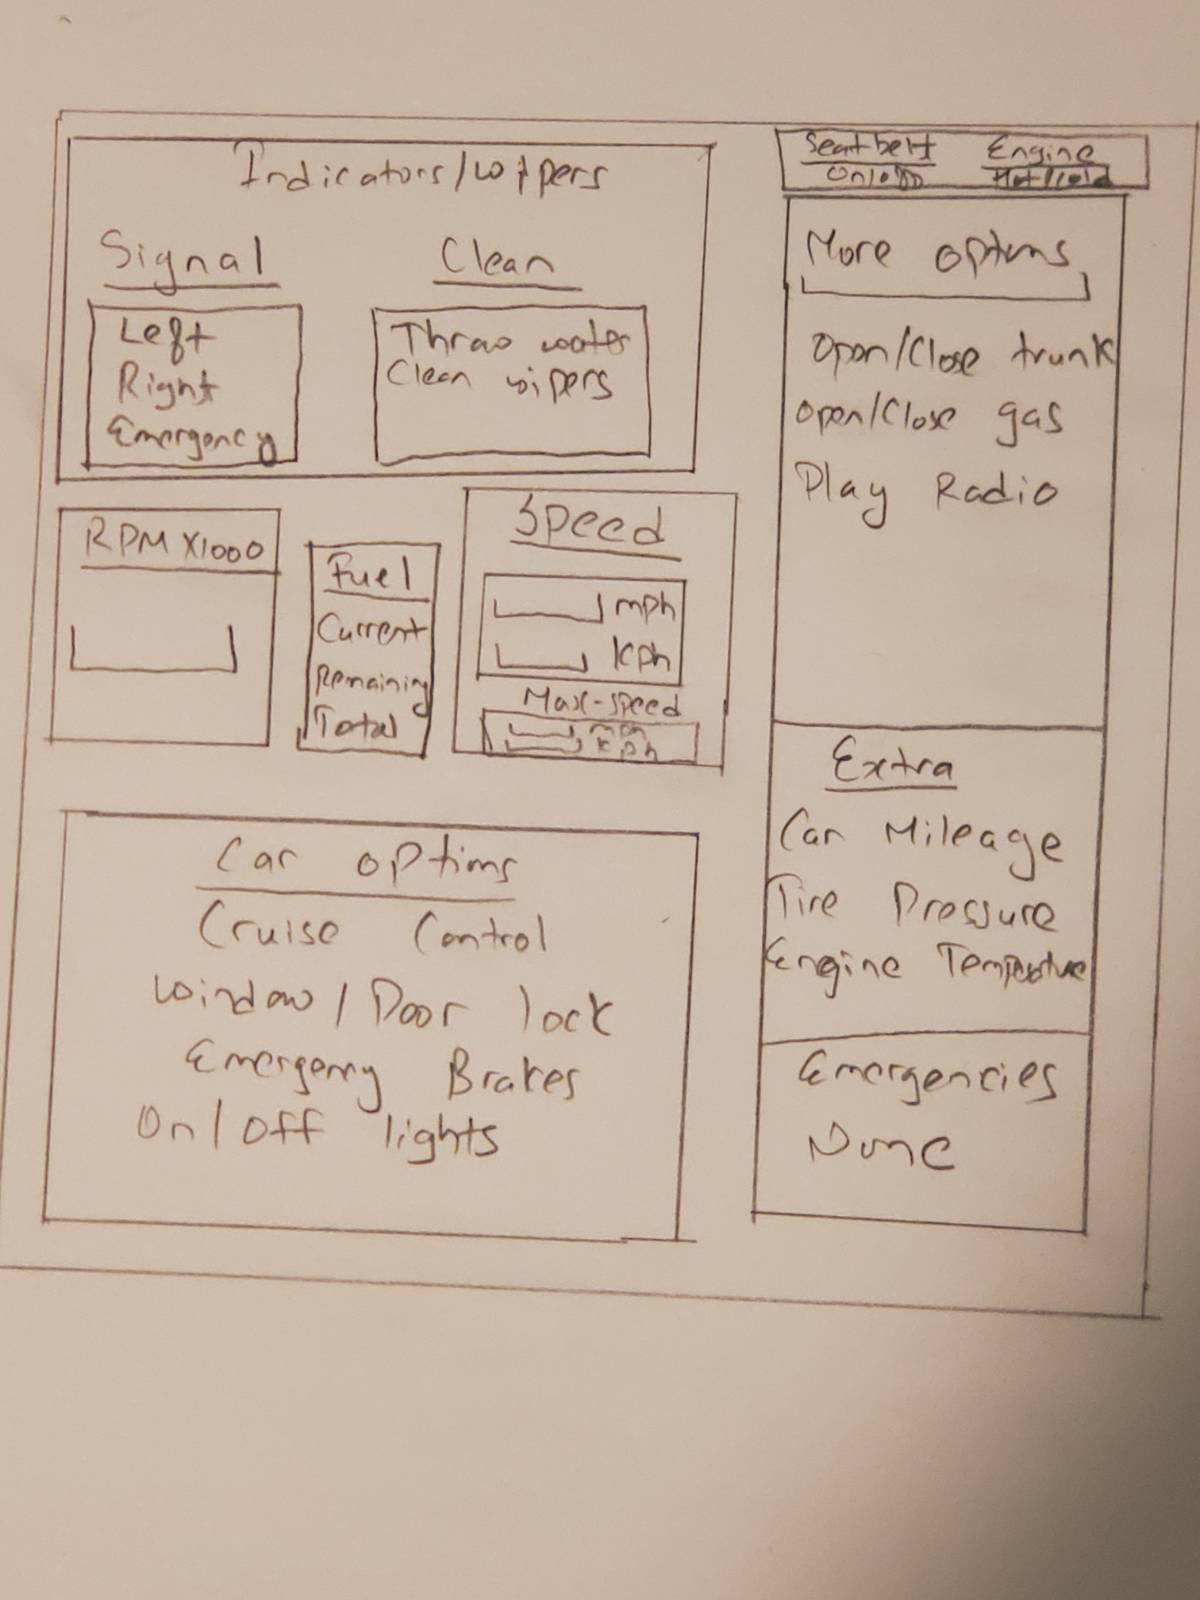 Indicators/wipers
Signal
Left
Right
Emergency
Clean
Throw water
Clean wipers
RPM X1000
Fuel
Current
Remaining
Total
Speed
mph
kph
Max-speed
mph
kph
Car options
Cruise Control
Window/Door lock
Emergency Brakes
On/Off lights
Seatbelt
On/off
Engine
Hot/Cold
More options
Open/Close trunk
Open/Close gas
Play Radio
Extra
Car Mileage
Tire Pressure
Engine Temperature
Emergencies
None